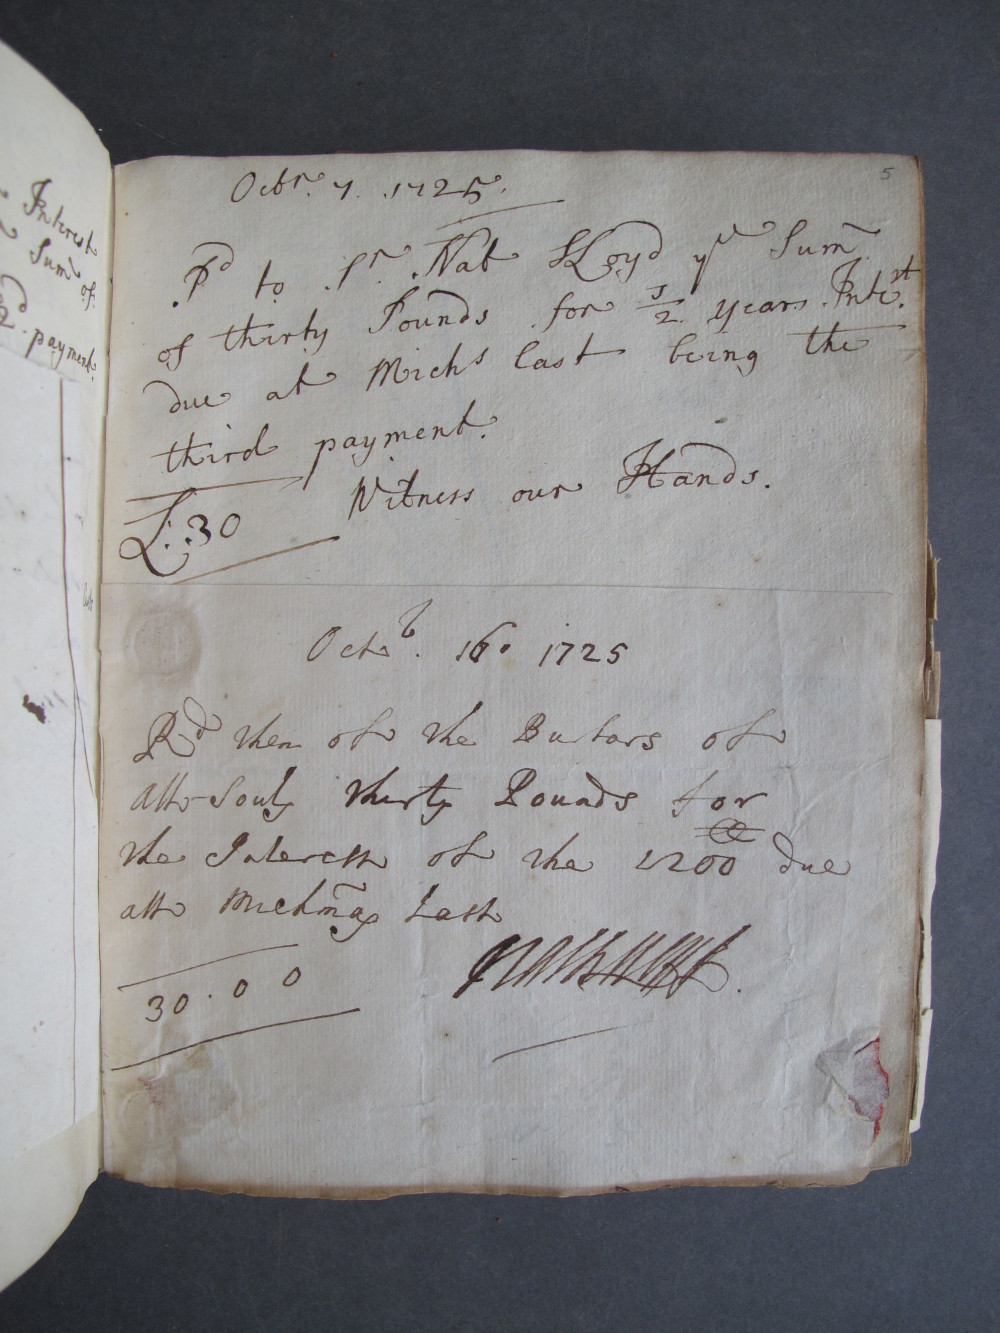 Interest
Sum of
payment.
5
Octbr. 7. 1725.
Pd to Sr. Nat LLoyd ye Sum
of thirty Pounds for 1/2 years Intrst.
due at Michs last being the
third payment.
Witness our Hands.
L:.30
Octb. 16. 1725
Rd then of the Bursars of
All-Souls thirty Pounds for
the Interest of the 1200 due
att Michmas Last
30.0 0